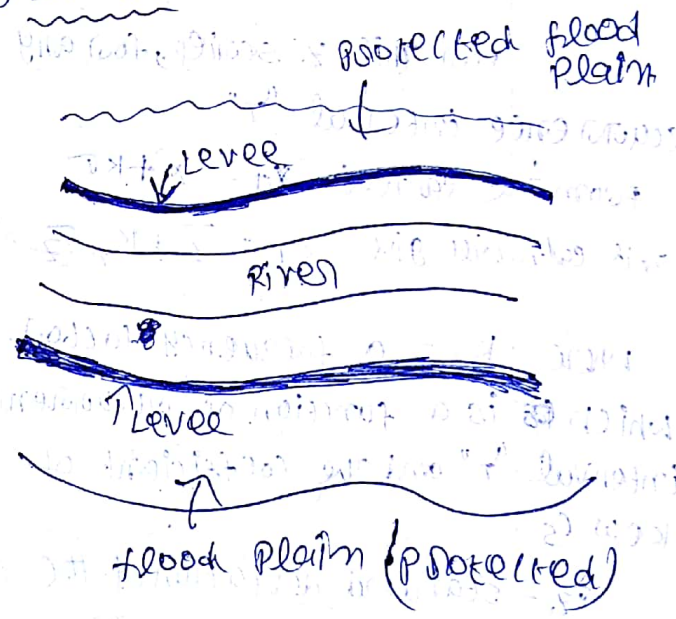 Protected flood
Plain
Levee
River
Levee
flood Plain (Protected)